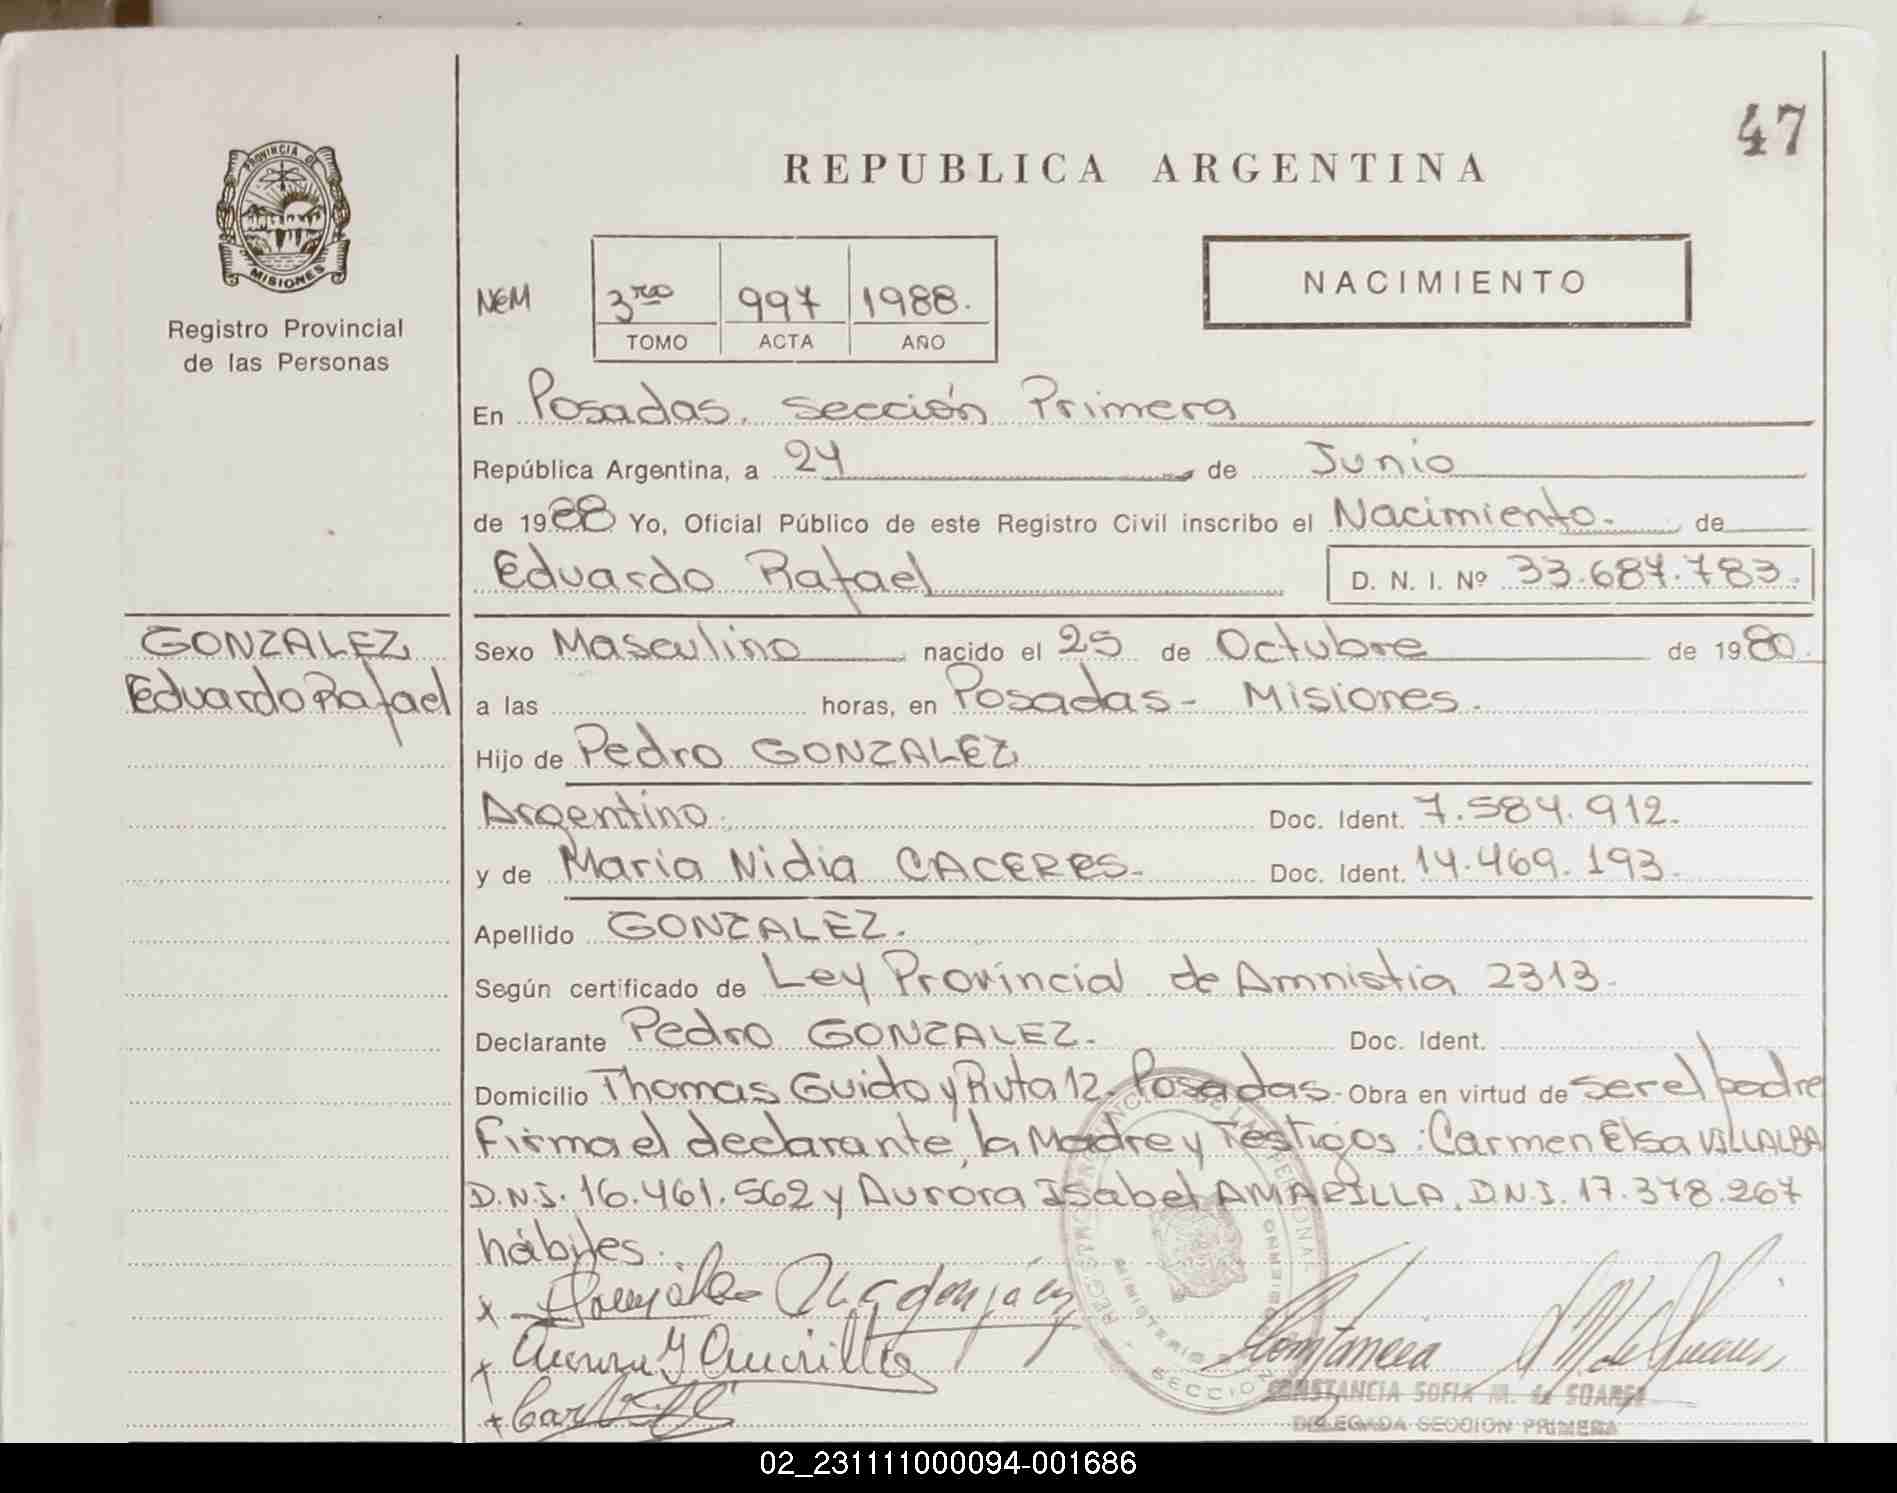 47
PROVINCIA DE
MISIONES
Registro Provincial
de las Personas
REPUBLICA ARGENTINA
NEM
3ro 997 1988.
TOMO ACTA AÑO
NACIMIENTO
En Posadas. Sección Primera
República Argentina, a 24 de Junio
de 1988 Yo, Oficial Público de este Registro Civil inscribo el Nacimiento. de
Eduardo Rafael D. N. I. Nº 33.687.783.
GONZALEZ
Eduardo Rafael
Sexo Masculino nacido el 25 de Octubre de 1980.
a las horas, en Posadas - Misiones.
Hijo de Pedro GONZALEZ
Argentino. Doc. Ident. 7.584.912.
y de María Nidia CACERES. Doc. Ident. 14.469.193.
Apellido GONZALEZ.
Según certificado de Ley Provincial de Amnistia 2313.
Declarante Pedro GONZALEZ. Doc. Ident.
Domicilio Thomas Guido y Ruta 12. Posadas - Obra en virtud de ser el padre
Firma el declarante, la Madre y Testigos: Carmen Elsa VILLALBA
D.N.I. 16.461.562 y Aurora Isabel AMARILLA. D.N.I. 17.378.267
hábiles.
Constancia S M de Suarez
CONSTANCIA SOFIA M. de SUAREZ
DELEGADA SECCION PRIMERA
02_231111000094-001686